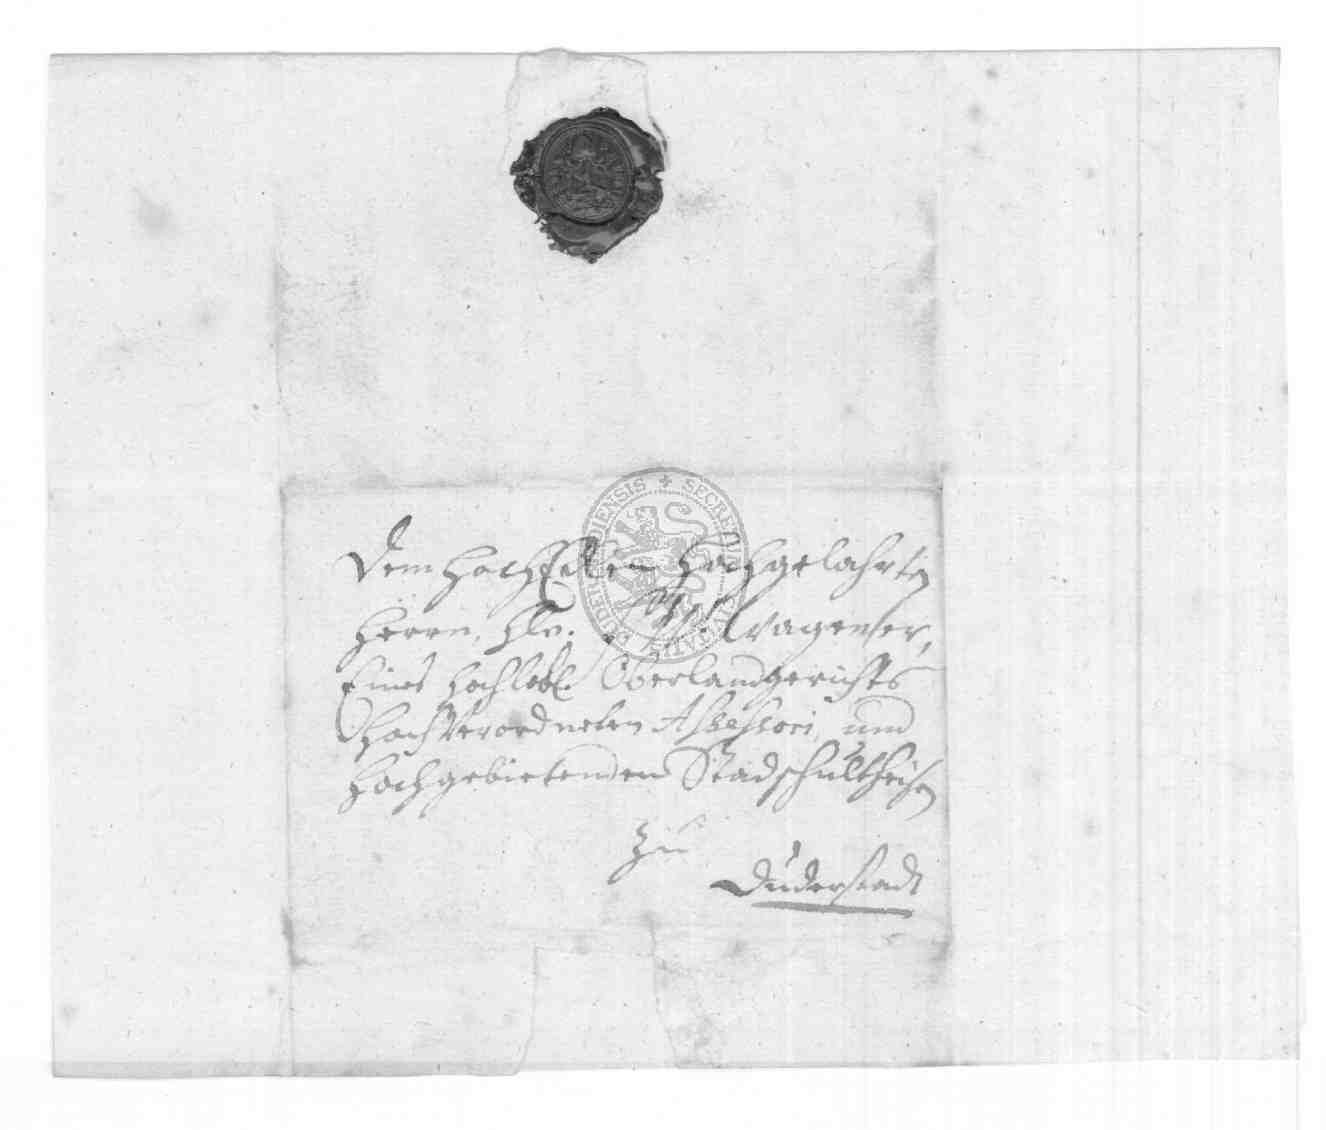 Dem HochEdlen Hochgelahrten
Herrn, Hln. Wagener,
Eines Hochlobl. Oberlandgerichts
Hochverordneten Assessori, und
Hochgebietenden Stadschultheisen
zu
Duderstadt
SECRETUM CIVITATIS